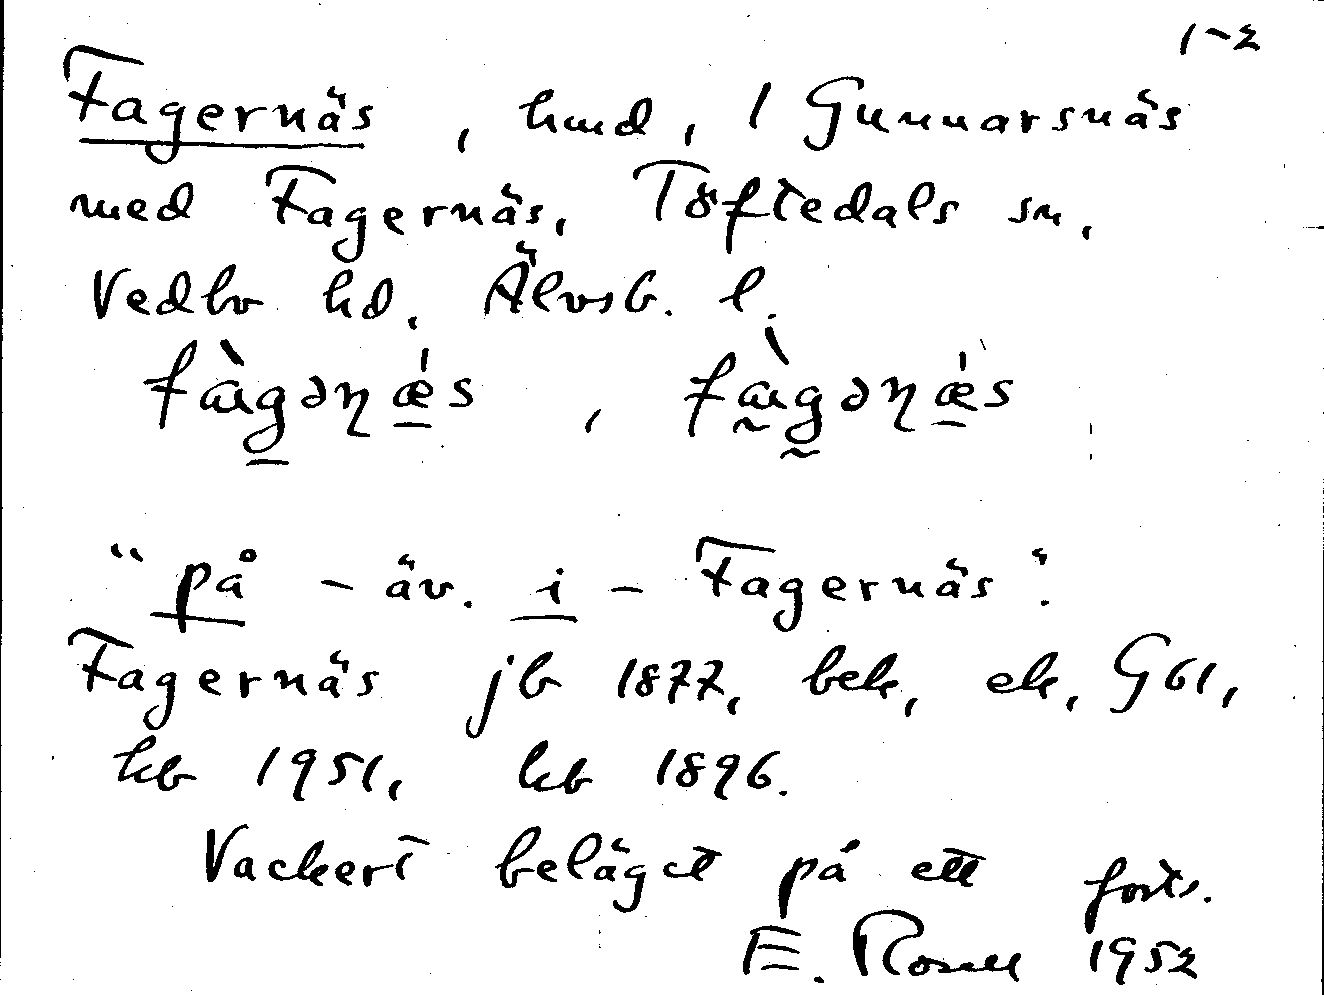 1-2
Fagernäs, hmd, i Gunnarsnäs
med Fagernäs, Töftedals sn,
Vedbo hd, Älvsb. l.
fàgəɳæ̀s, fàgəɳæ̀s
"på - äv. i - Fagernäs".
Fagernäs jb 1877, bek, ek, G61,
kb 1951, kb 1896.
Vackert beläget på ett forts.
E. Rosell 1952